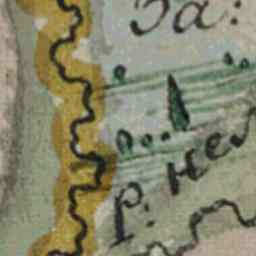 За:
Р: нел